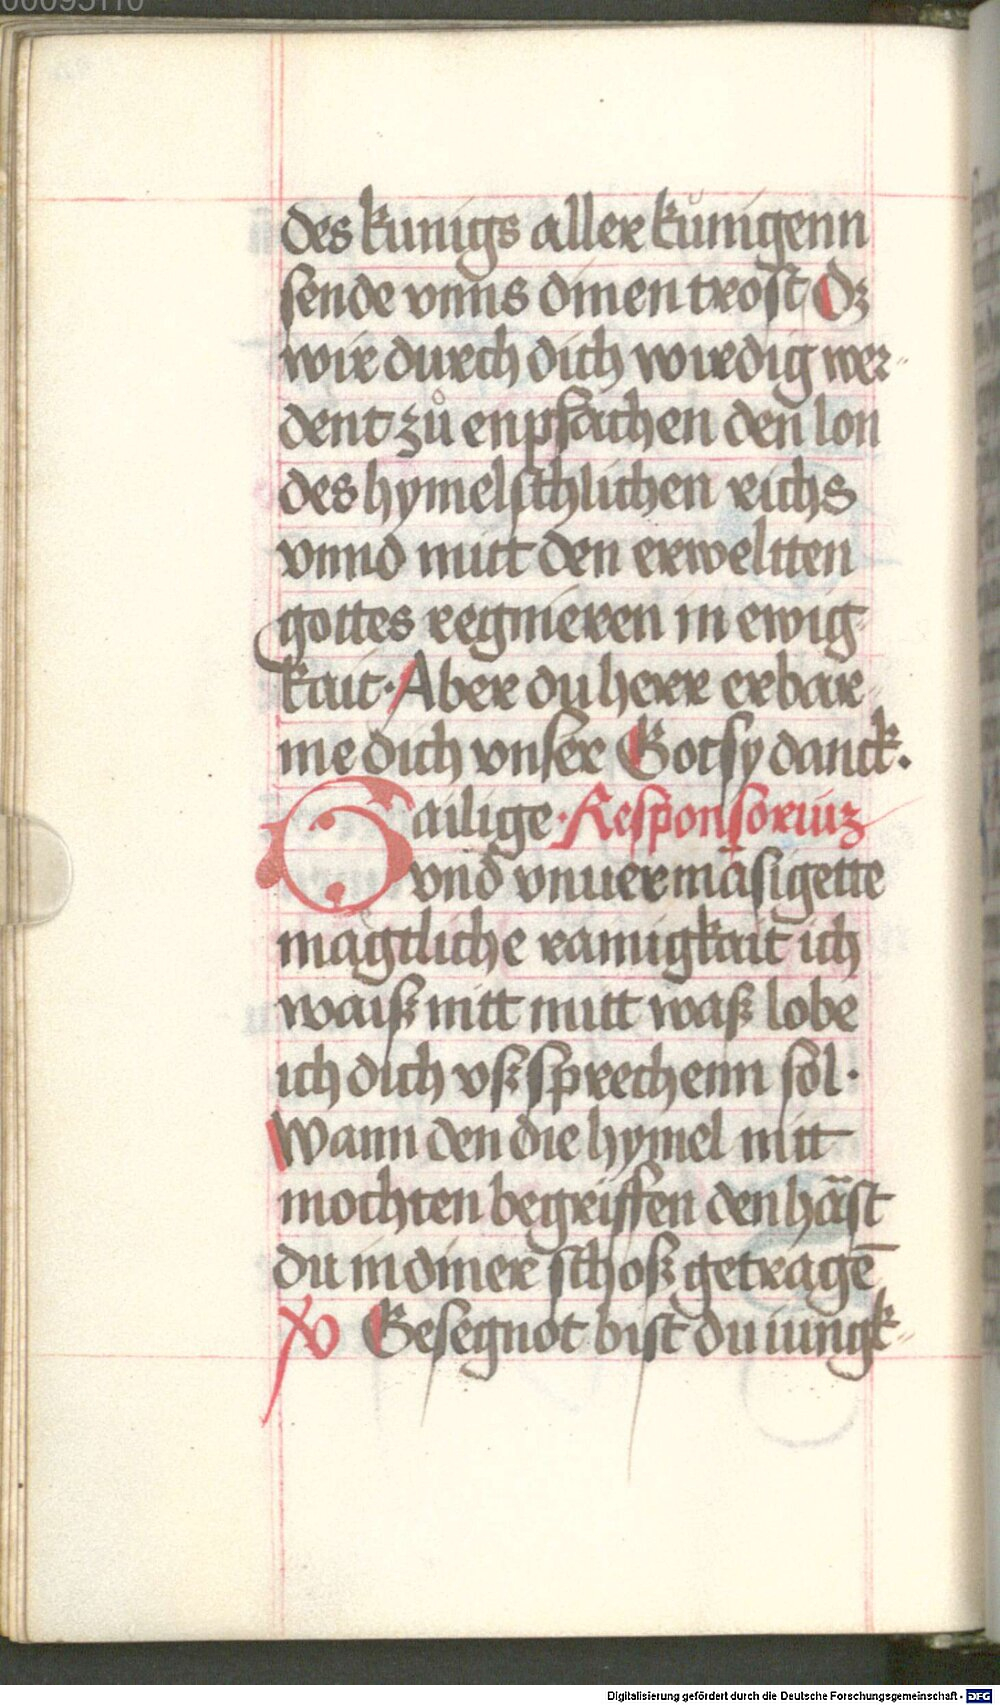 00095110
des kunigs aller kůnigenn
sende vnns dinen trost Dz
wir durch dich wirdig wer-
dent zů enpfachen den lon
des hymelschlichen richs
vnnd mitt den erweltten
gottes regnieren in ewig-
kait. Aber du herr erbar-
me dich vnser Got sy danck.
Hailige. Responsoriuz
vnd vnuermäsigette
magtliche rainigkait ich
waiß nitt mitt waß lobe
ich dich vßsprechenn sol.
Wann den die hymel nitt
mochten begriffen den häst
du in diner schoß getragē
V Gesegnot bist du iungk-
Digitalisierung gefördert durch die Deutsche Forschungsgemeinschaft - DFG